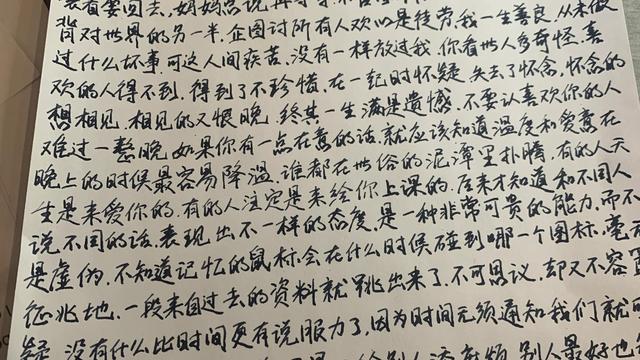 要回去,妈妈总说再
背对世界的另一半,企图讨所有人欢心是徒劳,我一生善良,从未做
过什么坏事,可这人间疾苦,没有一样放过我,你看世人多奇怪,喜
欢的人得不到,得到了不珍惜,在一起时怀疑,失去了怀念,怀念的
想相见,相见的又恨晚,终其一生满是遗憾,不要让喜欢你的人
难过一整晚,如果你有一点在意的话,就应该知道温度和爱意在
晚上的时候最容易降温,谁都在世俗的泥潭里扑腾,有的人天
生是来爱你的,有的人注定是来给你上课的,后来才知道和不同人
说不同的话,表现出不一样的态度,是一种非常可贵的能力,而不
是虚伪,不知道记忆的鼠标,会在什么时候碰到哪一个图标,毫无
征兆地,一段来自过去的资料就跳出来了,不可思议,却又不容
疑,没有什么比时间更有说服力了,因为时间无须通知我们就
给别人添麻烦,别人最好也